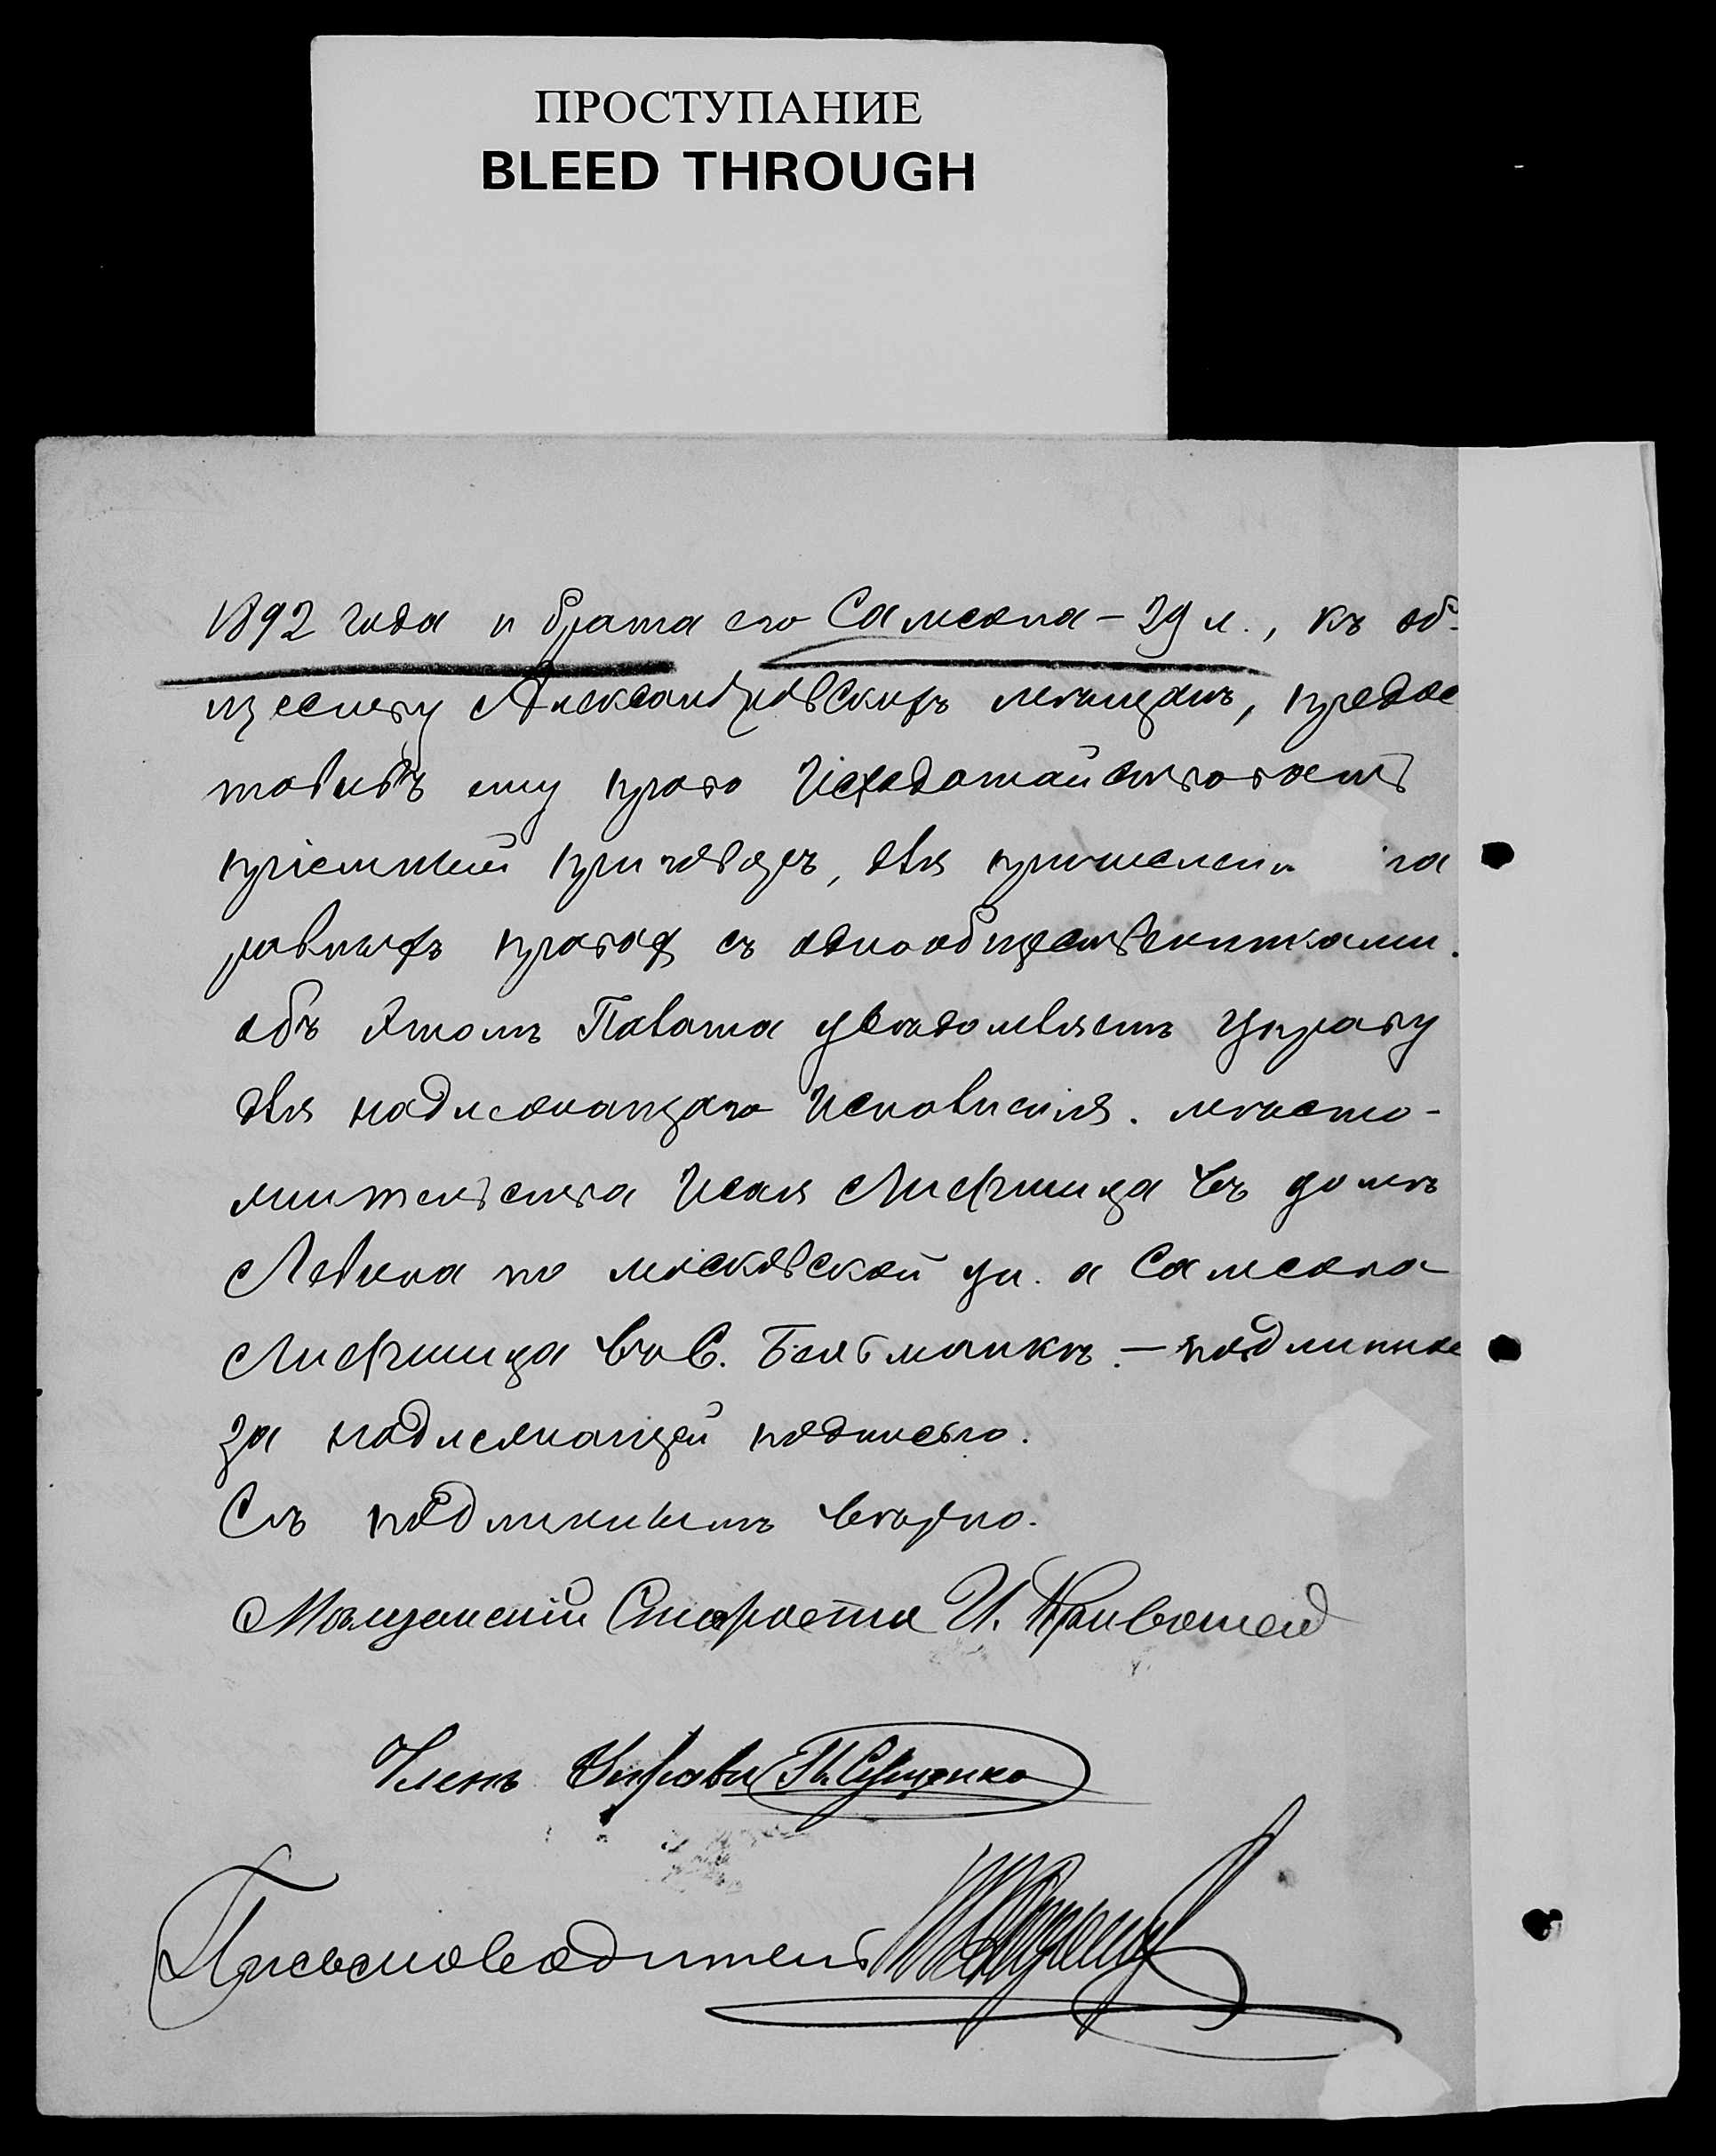 ПРОСТУПАНИЕ
BLEED THROUGH
1892 года и брата его Самсона – 29 л., къ об-
ществу Александровскихъ мѣщанъ, предос
тавивъ ему право исходатайствовать
пріемный приговоръ, для причислені на
равныхъ правах съ однообщественниками.
объ этомъ Палата увѣдомляетъ Управу
для надлежащаго исполненія. мѣсто-
жительства Исая Лифшица въ домѣ
Левина по московской ул. а Самсона
Лифшица въ С. Бельманкѣ. – подлинное
за надлежащей подписью.
Съ подлиннымъ вѣрно.
Мѣщанскій Староста И.
Членъ Управы
Письмоводитель